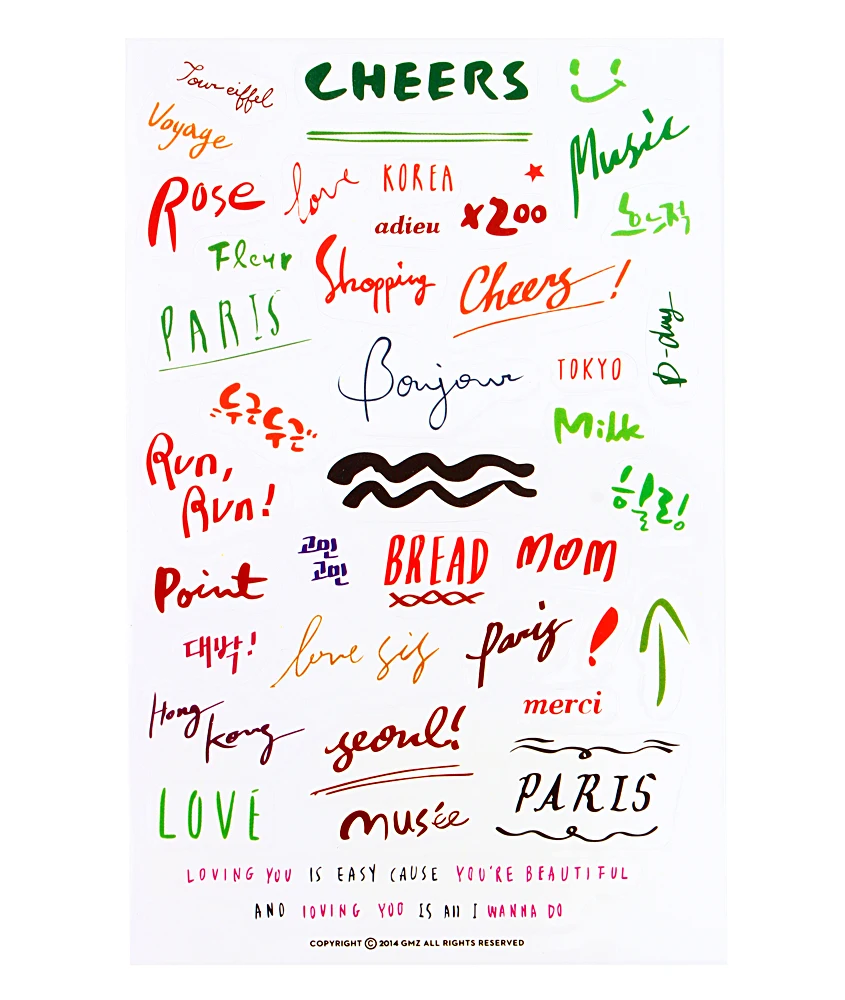 Tour eiffel
CHEERS
Voyage
Music
Rose
love
KOREA
adieu
x200
흐느적
Fleur
Shopping
Cheers!
PARIS
D-day
Bonjour
TOKYO
두근두근
Milk
Run,
Run!
힐링!
고민
고민
BREAD
MOM
Point
대박!
love sis
Paris
!
merci
Hong
Kong
seoul!
PARIS
LOVE
musée
LOVING YOU IS EASY CAUSE YOU'RE BEAUTIFUL
AND lOVING YOU IS All I WANNA DO
COPYRIGHT © 2014 GMZ ALL RIGHTS RESERVED